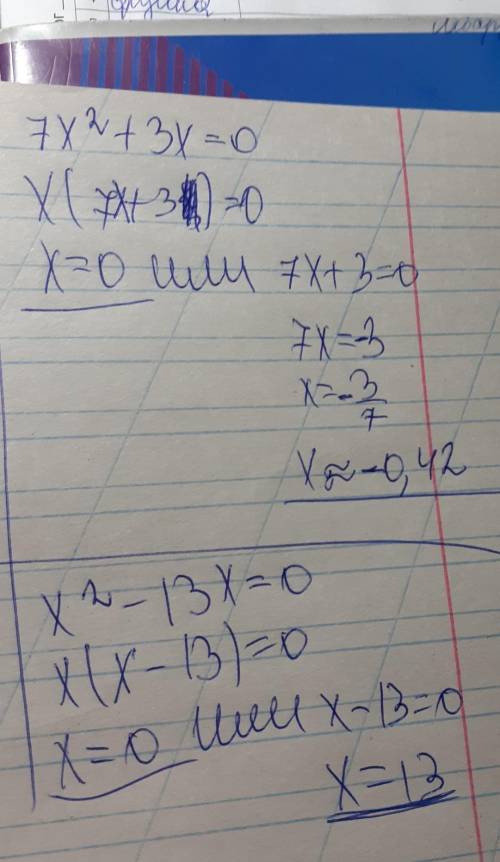 7x² + 3x = 0
x(7x + 3) = 0
x = 0 или 7x + 3 = 0
7x = -3
x = -3/7
x ≈ -0,42
x² - 13x = 0
x(x - 13) = 0
x = 0 или x - 13 = 0
x = 13